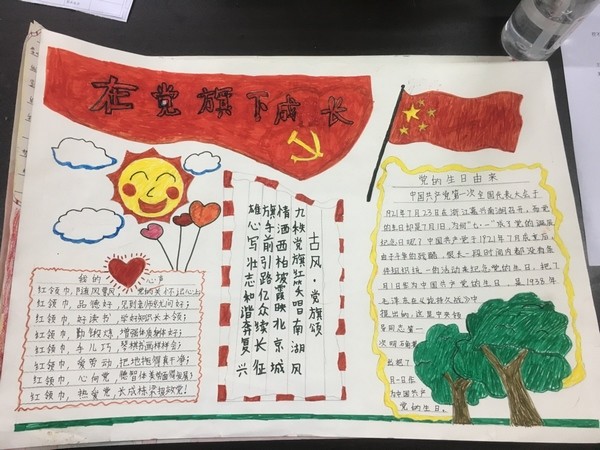 在党旗下成长
我的 心声
红领巾,随风飘,党的关怀记心上
红领巾,品德好,见到老师先问好;
红领巾,好读书,学好知识长本领;
红领巾,勤锻炼,增强体质身体好;
红领巾,手儿巧,琴棋书画样样会;
红领巾,爱劳动,把地拖得真干净;
红领巾,心向党,德智体美
红领巾,热爱党,长成栋梁报效党!
古风·党旗颂
九秩党旗红笑唱南湖风
情洒西柏坡霞映北京城
旗手前引路亿众续长征
雄心写壮志和谐奔复兴
党的生日由来
中国共产党第一次全国代表大会于
1921年7月23日在浙江嘉兴南湖召开,而党
的生日却是7月1日,为何“七·一”成了党的诞辰
纪念日呢?中国共产党于1921年7月成立后,
由于斗争的残酷,很长一段时间内都没有条
件组织统一的活动来纪念党的生日,把7
月1日 为中国共产党的生日,是1938年
毛泽东在《论持久战》中
提出的,这是中央领
导同志第一
次明确
出把7
月一日作
为中国共产
党的生日。